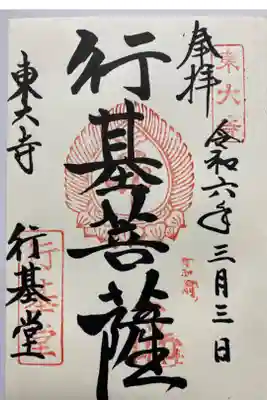 奉拝
令和六年三月三日
行基菩薩
東大寺
行基堂
東大寺
行基堂